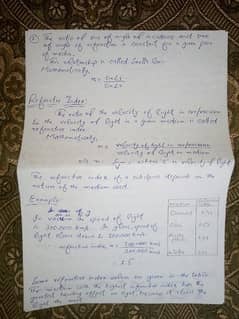 ② The ratio of sine of angle of incidence and sine
of angle of refraction is constant for a given pair
of media.
This relationship is called Snell's law.
Mathematically,
n = Sin i / Sin r
Refractive Index:
The ratio of the velocity of light in vacuum
to the velocity of light in a given medium is called
refractive index.
Mathematically,
n = velocity of light in vacuum / velocity of light in medium
is velocity of light
The refractive index of a substance depends on the
nature of the medium used.
Example
In vacuum the speed of light
is 300,000 km/s. In glass, speed of
light slows down to 200,000 km/s
refractive index, n = 300,000 km/s / 200,000 km/s
= 1.5
medium
Diamond
Glass
water
Some refractive index values are given in the table.
The medium with the highest refractive index has the
greatest bending effect on light because it slows the
light the